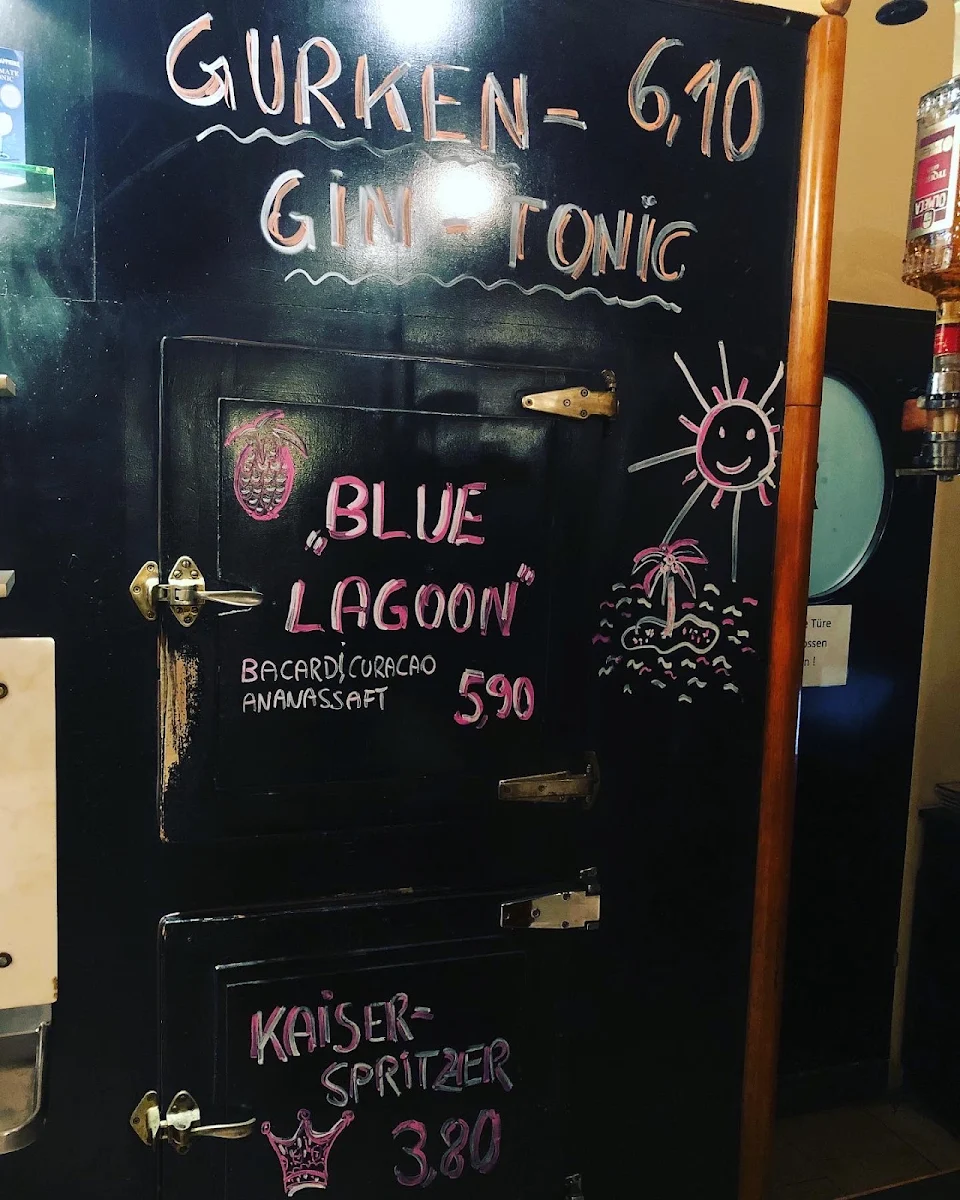 GURKEN- 6,10
GIN-TONIC
„BLUE
LAGOON"
BACARDI, CURACAO
ANANASSAFT 5,90
KAISER-
SPRITZER
3,80
OLMECA
e Türe
ossen
n !